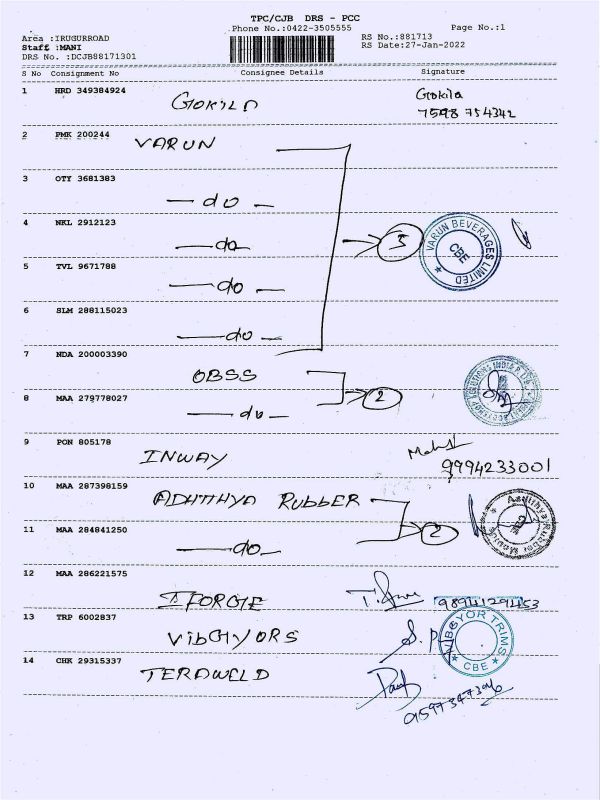 TPC/CJB DRS - PCC
Phone No.:0422-3505555
Page No.:1
Area :IRUGURROAD
RS No.:881713
Staff :MANI
RS Date:27-Jan-2022
DRS No. :DCJB88171301
S No Consignment No Consignee Details Signature
1 HRD 349384924 GOKILA Gokila
7598 754342
2 PMK 200244 VARUN
3 OTY 3681383 —do—
4 NKL 2912123 —do 5 VARUN BEVERAGES LIMITED CBE
5 TVL 9671788 —do—
6 SLM 288115023 —do—
7 NDA 200003390 OBSS
8 MAA 279778027 —do— 2
9 PON 805178 INWAY
9994233001
10 MAA 287398159 ADHITHYA RUBBER
11 MAA 284841250 —do— 2
12 MAA 286221575 IFORGE 989412 9453
13 TRP 6002837 VIBGYORS VIBGYOR TRIMS CBE
14 CHK 29315337 TERAWELD